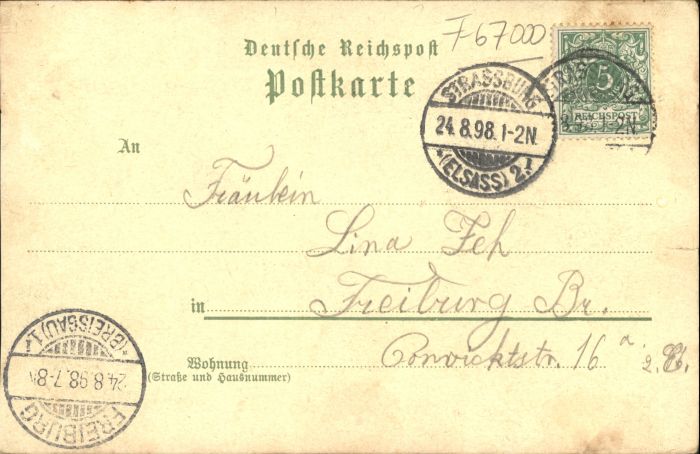 F67000
Deutsche Reichspost
Postkarte
5
REICHSPOST
STRASSBURG
24.8.98.1-2N.
*(ELSASS) 2.f
An
Fräulein
Lina Feh
in Freiburg Br.
Wohnung
(Straße und Hausnummer)
Convicktstr. 16 a 2. Et.
FREIBURG
24.8.98.7-8N.
*(BREISGAU) 1*